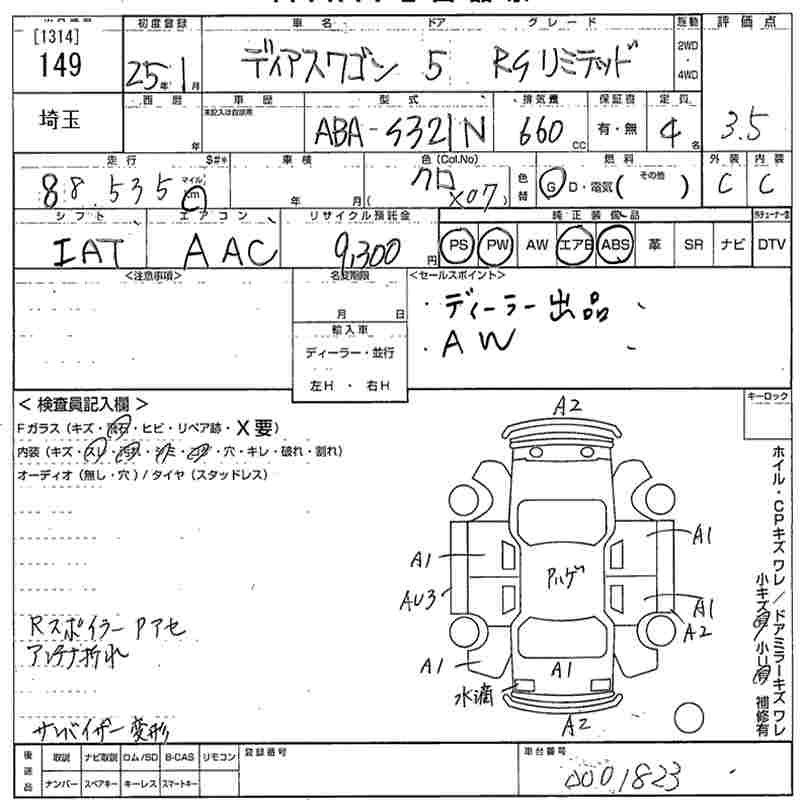 [1314]
149
初度登録 車名 ドア グレード 駆動 評価点
25年1月 ディアスワゴン 5 RGリミテッド 2WD・4WD
埼玉
西暦 車歴 型式 排気量 保証書 定員
年 未記入は自家用 ABA-S321N 660cc 有・無 4名 3.5
走行 S#* 車検 色(Col.No) 燃料 外装 内装
88,535 マイル km 年 月 クロ (X07) 色替 G D・電気( その他 ) C C
シフト エアコン リサイクル預託金 純正装備品
IAT AAC 9,300円 PS PW AW エアB ABS 革 SR ナビ DTV
<注意事項> 名変期限 <セールスポイント>
月 日 ・ディーラー出品
輸入車 ・AW
ディーラー・並行
左H ・ 右H
キーロック
< 検査員記入欄 >
Fガラス (キズ・飛石・ヒビ・リペア跡・X要)
内装 (キズ・スレ・汚れ・シミ・コゲ・穴・キレ・破れ・割れ)
オーディオ (無し・穴) / タイヤ (スタッドレス)
A2
A1
A1
Aハゲ
AU3
A1
A2
A1
A1
水滴
A2
Rスポイラー Pアセ
アンテナ折れ
サンバイザー変形
ホイル・CPキズ ワレ / ドアミラーキズ ワレ
小キズ有 / 小U有 補修有
後送品 取説 ナビ取説 ロム/SD B-CAS リモコン 登録番号 車台番号
ナンバー スペアキー キーレス スマートキー 0001823